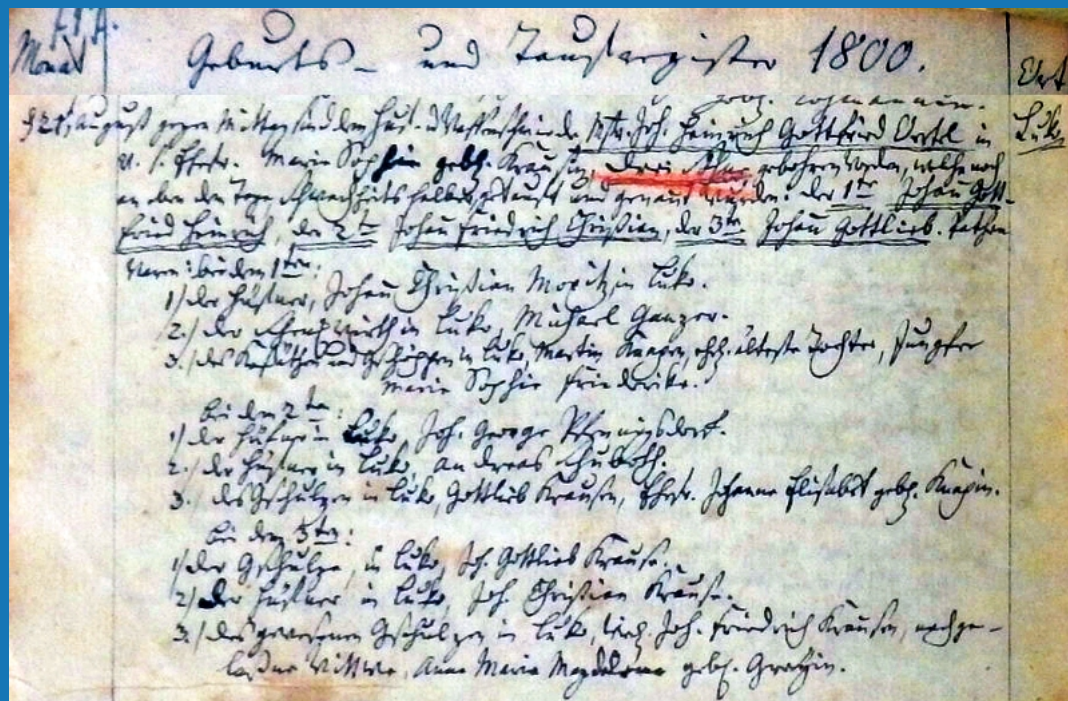 Monat
Geburts- und Taufregister 1800.
Ort
Luko
d 21. August gegen Mittag sind dem Huf- u Waffenschmiede, Mstr. Joh. Heinrich Gottfried Oertel in
u. s. Ehefr. Marie Sophie gebh. Krausin, drei Söhne gebohren worden, welche noch
an eben dem Tage Schwachheits halber getauft und genannt wurden: der 1te Johann Gott-
fried Heinrich, der 2te Johann Friedrich Christian, der 3te Johann Gottlieb. Pathen
waren: bei dem 1ten:
1.) der Hüfner, Johann Christian Moritz in Luko.
2.) der Schenkwirth in Luko, Michael Ganzer.
3.) des Kossathen und Schöppen in Luko, Martin Knapen, ehel. älteste Tochter, Jungfer
Marie Sophie Friederike.
bei dem 2ten:
1.) der Hüfner in Luko, Joh. George Pfenningsdorf.
2.) der Hüfner in Luko, Andreas Schuboth.
3.) des Gschulzen in Luko, Gottlieb Krausen, Ehefr. Johanne Elisabet gebh. Knapin.
bei dem 3ten:
1.) der Gschulze, in Luko, Joh. Gottlieb Krause.
2.) der Hüfner in Luko, Joh. Christian Krause.
3.) des gewesenen Gschulzen in Luko, weil. Joh. Friedrich Krausen, nachge-
laßne Wittwe, Anne Marie Magdalene gebh.